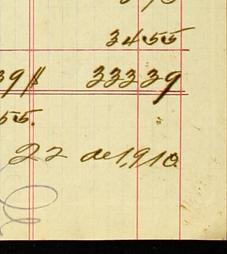 3455
39 $ 33339
55.
22 de 1,910